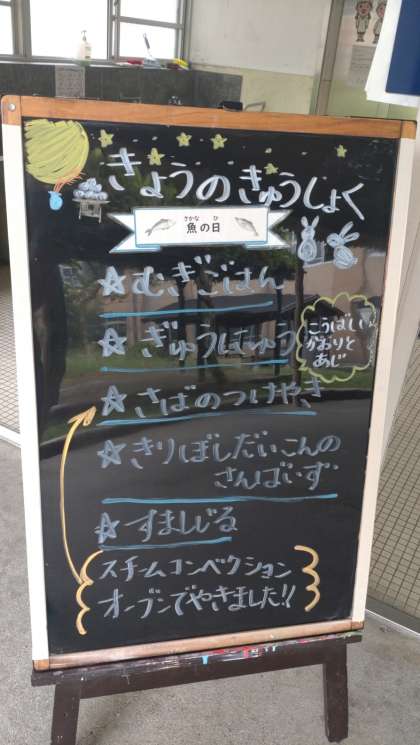 きょうのきゅうしょく
さかな ひ
魚の日
☆むぎごはん
☆ぎゅうにゅう
こうばしい
かおりと
あじ
☆さばのつけやき
☆きりぼしだいこんの
さんばいず
☆すましじる
スチームコンベクション
オーブンでやきました!!